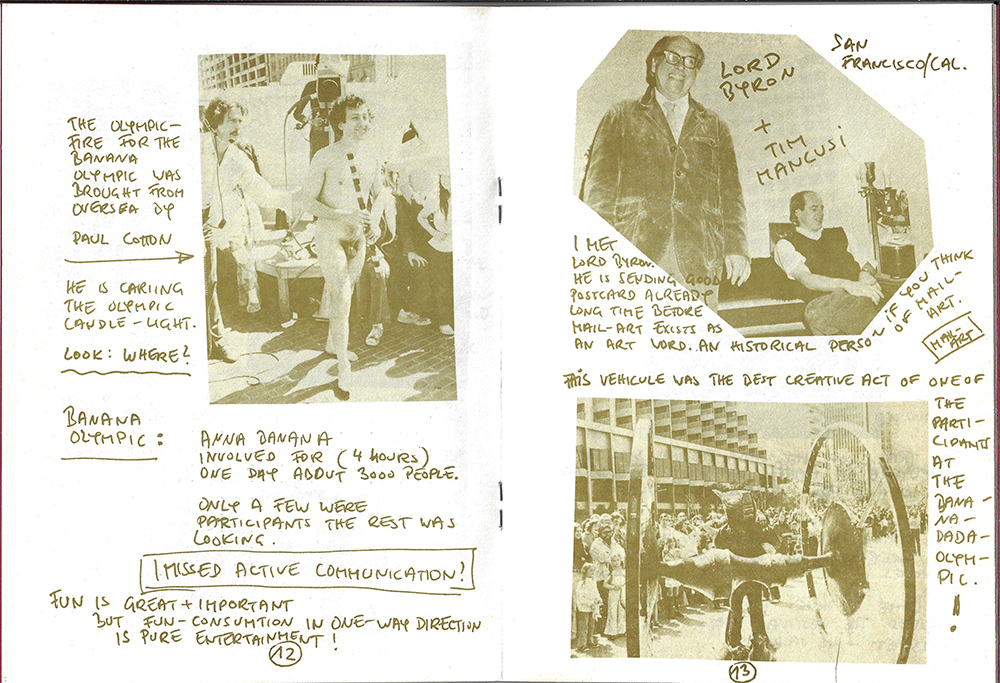 THE OLYMPIC-
FIRE FOR THE
BANANA
OLYMPIC WAS
BROUGHT FROM
OVERSEA BY
PAUL COTTON
HE IS CARIING
THE OLYMPIC
CANDLE-LIGHT.
LOOK: WHERE?
BANANA
OLYMPIC:
ANNA BANANA
INVOLVED FOR (4 HOURS)
ONE DAY ABOUT 3000 PEOPLE.
ONLY A FEW WERE
PARTICIPANTS THE REST WAS
LOOKING.
I MISSED ACTIVE COMMUNICATION!
FUN IS GREAT + IMPORTANT
BUT FUN-CONSUMTION IN ONE-WAY DIRECTION
IS PURE ENTERTAINMENT!
12
SAN
FRANCISCO/CAL.
LORD
BYRON
+
TIM
MANCUSI
I MET
LORD BYRON.
HE IS SENDING GOOD
POSTCARD ALREADY
LONG TIME BEFORE
MAIL-ART EXISTS AS
AN ART WORD. AN HISTORICAL PERSON
IF YOU THINK
OF MAIL-
ART.
MAIL-
ART
THIS VEHICULE WAS THE BEST CREATIVE ACT OF ONE OF
THE
PARTI-
CIPANTS
AT
THE
BANA-
NA-
DADA-
OLYM-
PIC.
!
13